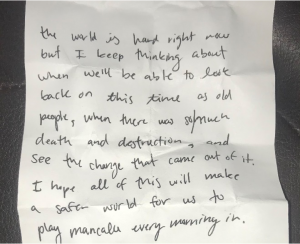 the world is hard right now
but I keep thinking about
when we'll be able to look
back on this time as old
people, when there was so much
death and destruction, and
see the change that came out of it.
I hope all of this will make
a safer world for us to
play mancala every morning in.